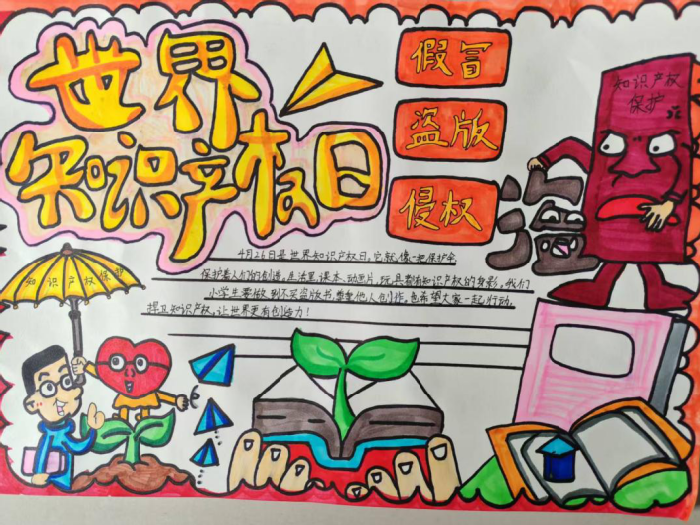 世界
知识产权日
假冒
盗版
侵权
知识产权
保护
盗
4月26日是世界知识产权日,它就像一把保护伞
保护着人们的创造,生活里课本、动画片、玩具都有知识产权的身影,我们
小学生要做到不买盗版书,尊重他人创作,也希望大家一起行动,
捍卫知识产权,让世界更有创造力!
知识产权保护